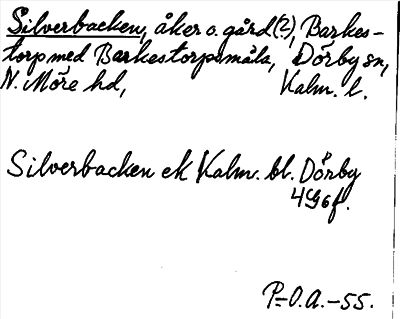 Silverbacken, åker o. gård(2), Barkes-
torp med Barkestorpsmåla, Dörby sn,
N. Möre hd, Kalm. l.
Silverbacken ek Kalm. bl. Dörby
4G6f.
P-O.A.-55.